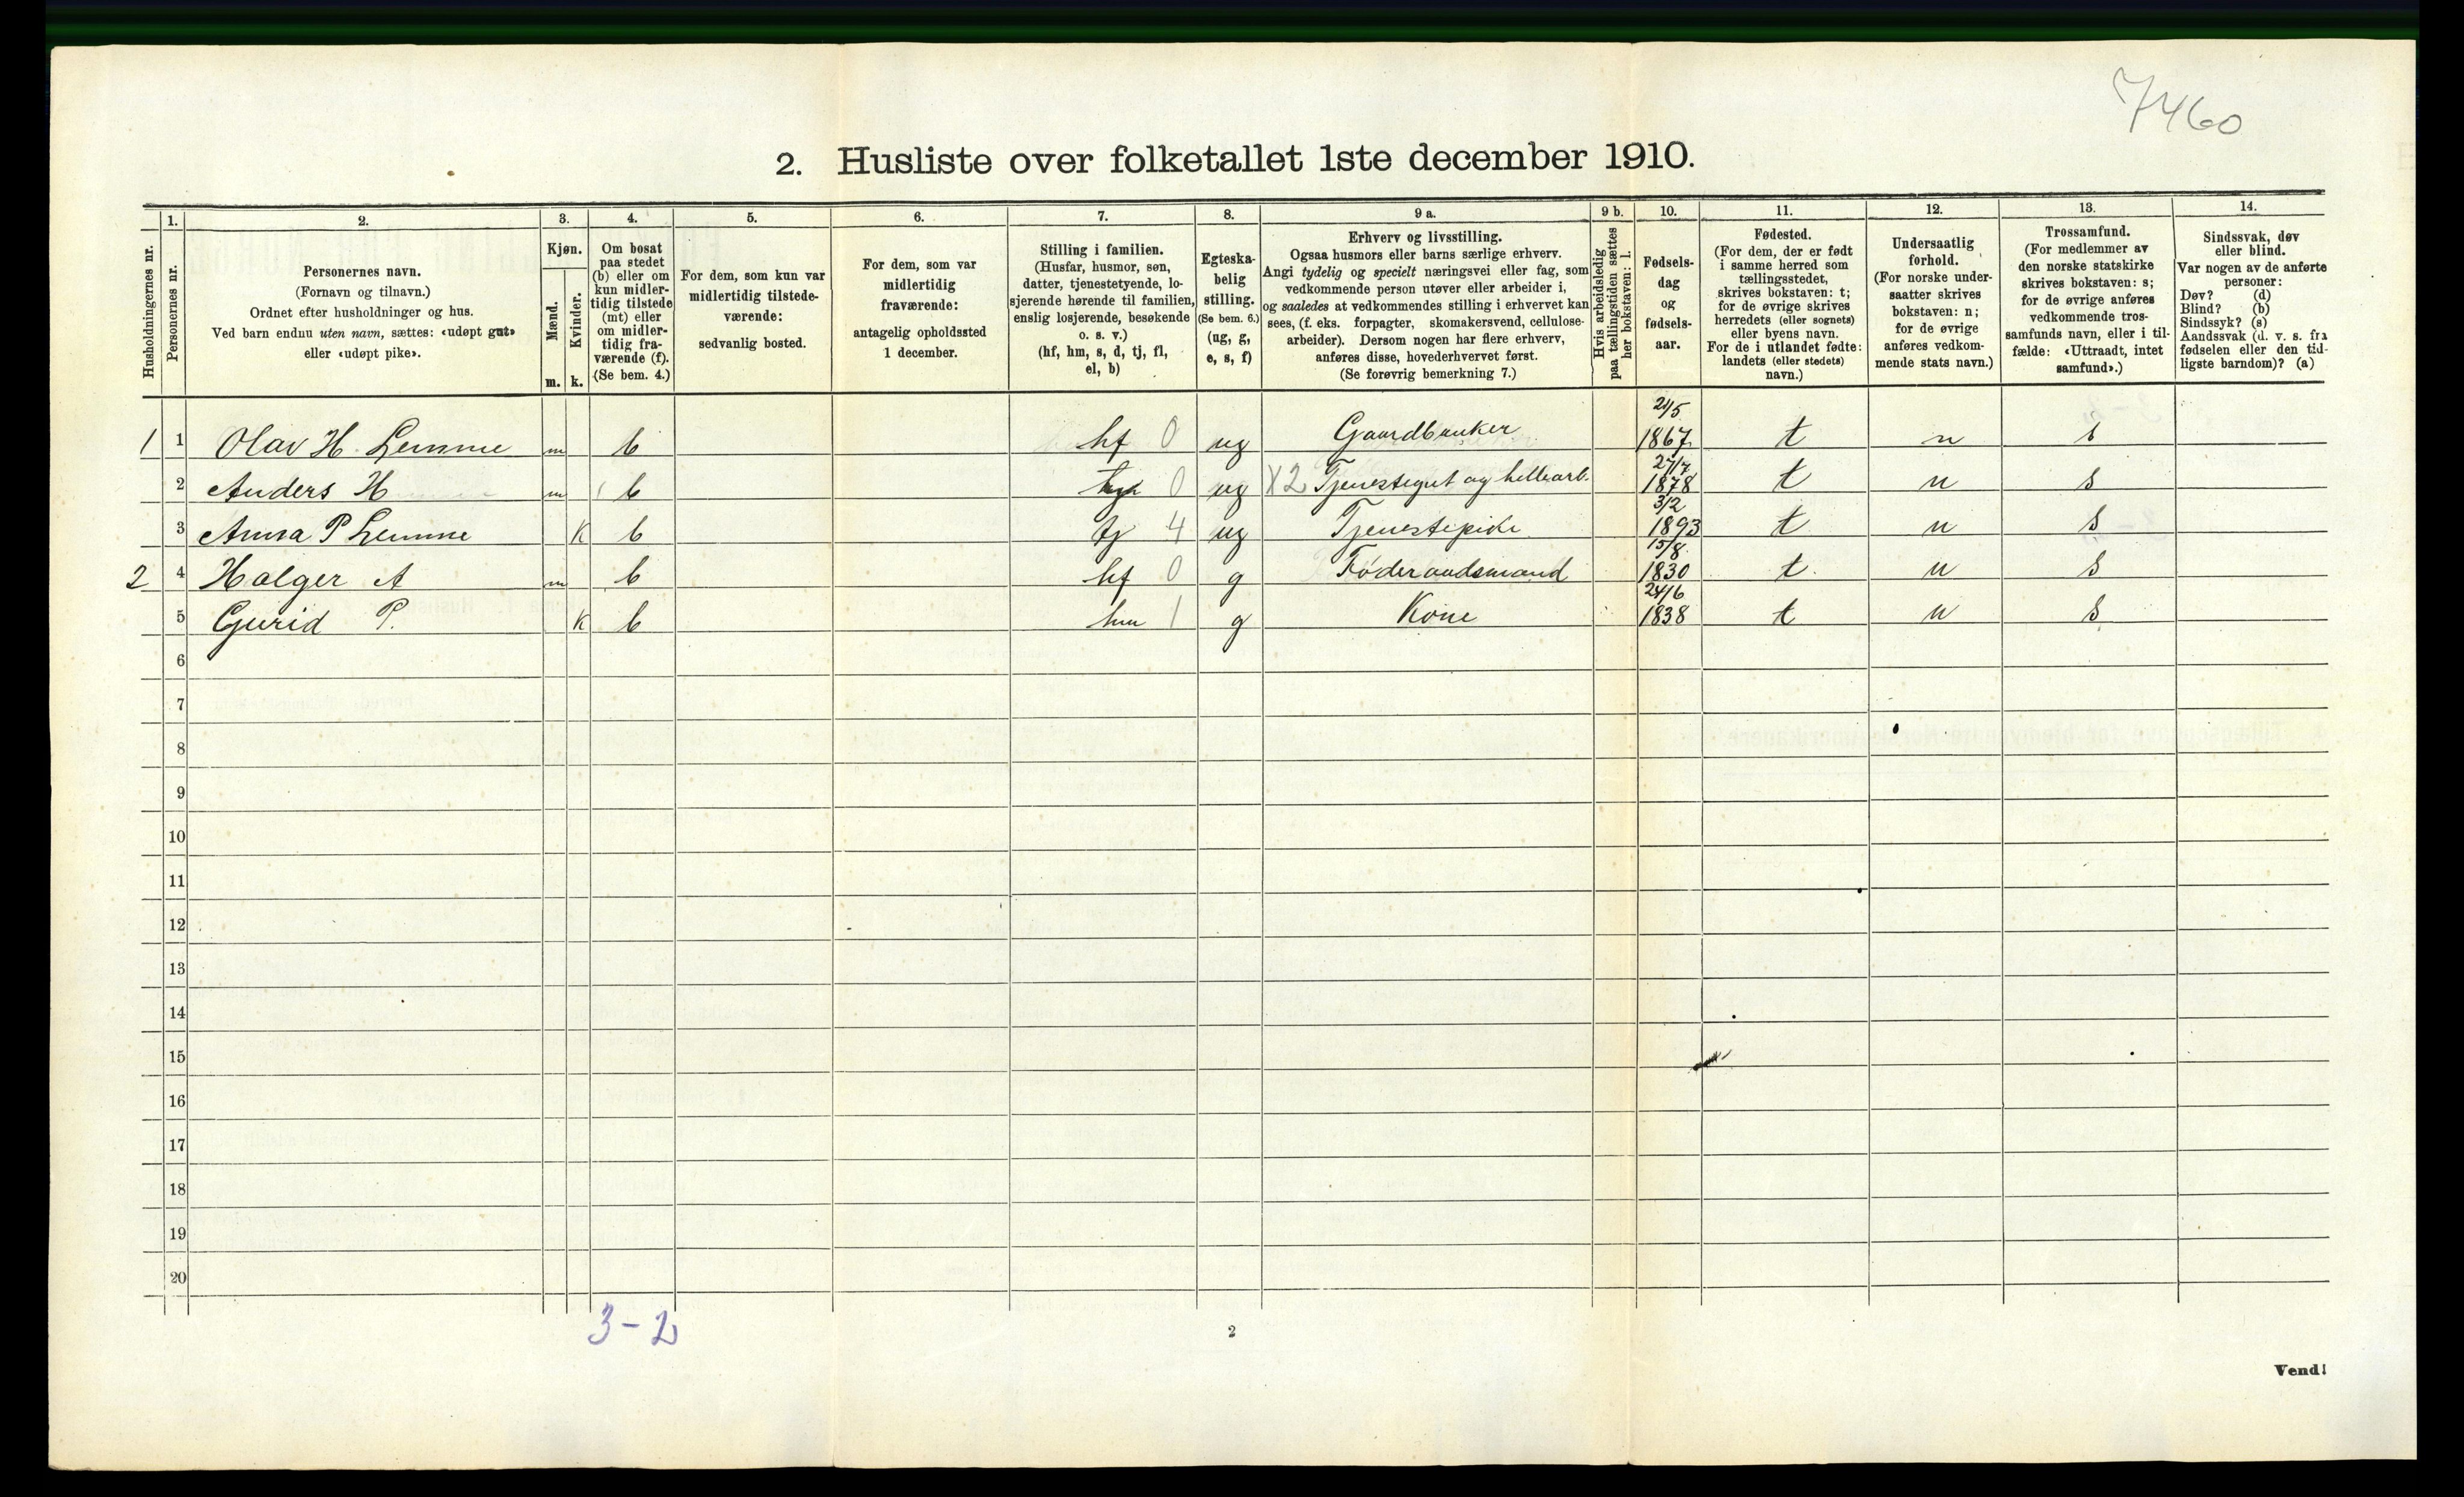 7460
2. Husliste over folketallet 1ste december 1910.
Husholdningernes nr.
1.
Personernes nr.
2.
Personernes navn.
(Fornavn og tilnavn.)
Ordnet efter husholdninger og hus.
Ved barn endnu uten navn, sættes: «udøpt gut»
eller «udøpt pike».
3.
Kjøn.
Mænd.
Kvinder.
m. k.
4.
Om bosat
paa stedet
(b) eller om
kun midler-
tidig tilstede
(mt) eller
om midler-
tidig fra-
værende (f).
(Se bem. 4.)
5.
For dem, som kun var
midlertidig tilstede-
værende:
sedvanlig bosted.
6.
For dem, som var
midlertidig
fraværende:
antagelig opholdssted
1 december.
7.
Stilling i familien.
(Husfar, husmor, søn,
datter, tjenestetyende, lo-
sjerende hørende til familien,
enslig losjerende, besøkende
o. s. v.)
(hf, hm, s, d, tj, fl,
el, b)
8.
Egteska-
belig
stilling.
(Se bem. 6.)
(ug, g,
e, s, f)
9 a.
Erhverv og livsstilling.
Ogsaa husmors eller barns særlige erhverv.
Angi tydelig og specielt næringsvei eller fag, som
vedkommende person utøver eller arbeider i,
og saaledes at vedkommendes stilling i erhvervet kan
sees, (f. eks. forpagter, skomakersvend, cellulose-
arbeider). Dersom nogen har flere erhverv,
anføres disse, hovederhvervet først.
(Se forøvrig bemerkning 7.)
9 b.
Hvis arbeidsledig
paa tællingstiden sættes
her bokstaven: l.
10.
Fødsels-
dag
og
fødsels-
aar.
11.
Fødested.
(For dem, der er født
i samme herred som
tællingsstedet,
skrives bokstaven: t;
for de øvrige skrives
herredets (eller sognets)
eller byens navn.
For de i utlandet fødte:
landets (eller stedets)
navn.)
12.
Undersaatlig
forhold.
(For norske under-
saatter skrives
bokstaven: n;
for de øvrige
anføres vedkom-
mende stats navn.)
13.
Trossamfund.
(For medlemmer av
den norske statskirke
skrives bokstaven: s;
for de øvrige anføres
vedkommende tros-
samfunds navn, eller i til-
fælde: «Uttraadt, intet
samfund».)
14.
Sindssvak, døv
eller blind.
Var nogen av de anførte
personer:
Døv? (d)
Blind? (b)
Sindssyk? (s)
Aandssvak (d. v. s. fra
fødselen eller den tid-
ligste barndom)? (a)
1 1 Olav H. Lemme m b hf 0 ug Gaardbruker 21/5 1867 t n s
2 Anders H m b 0 ug X2 Tjenestegut og hellearb. 27/7 1878 t n s
3 Anna P Lemme k b tj 4 ug Tjenestepike 3/2 1893 t n s
2 4 Halger A m b hf 0 g Føderaadsmand 15/8 1830 t n s
5 Gurid P. k b hm 1 g Kone 24/6 1838 t n s
6
7
8
9
10
11
12
13
14
15
16
17
18
19
20
3-2
2
Vend!